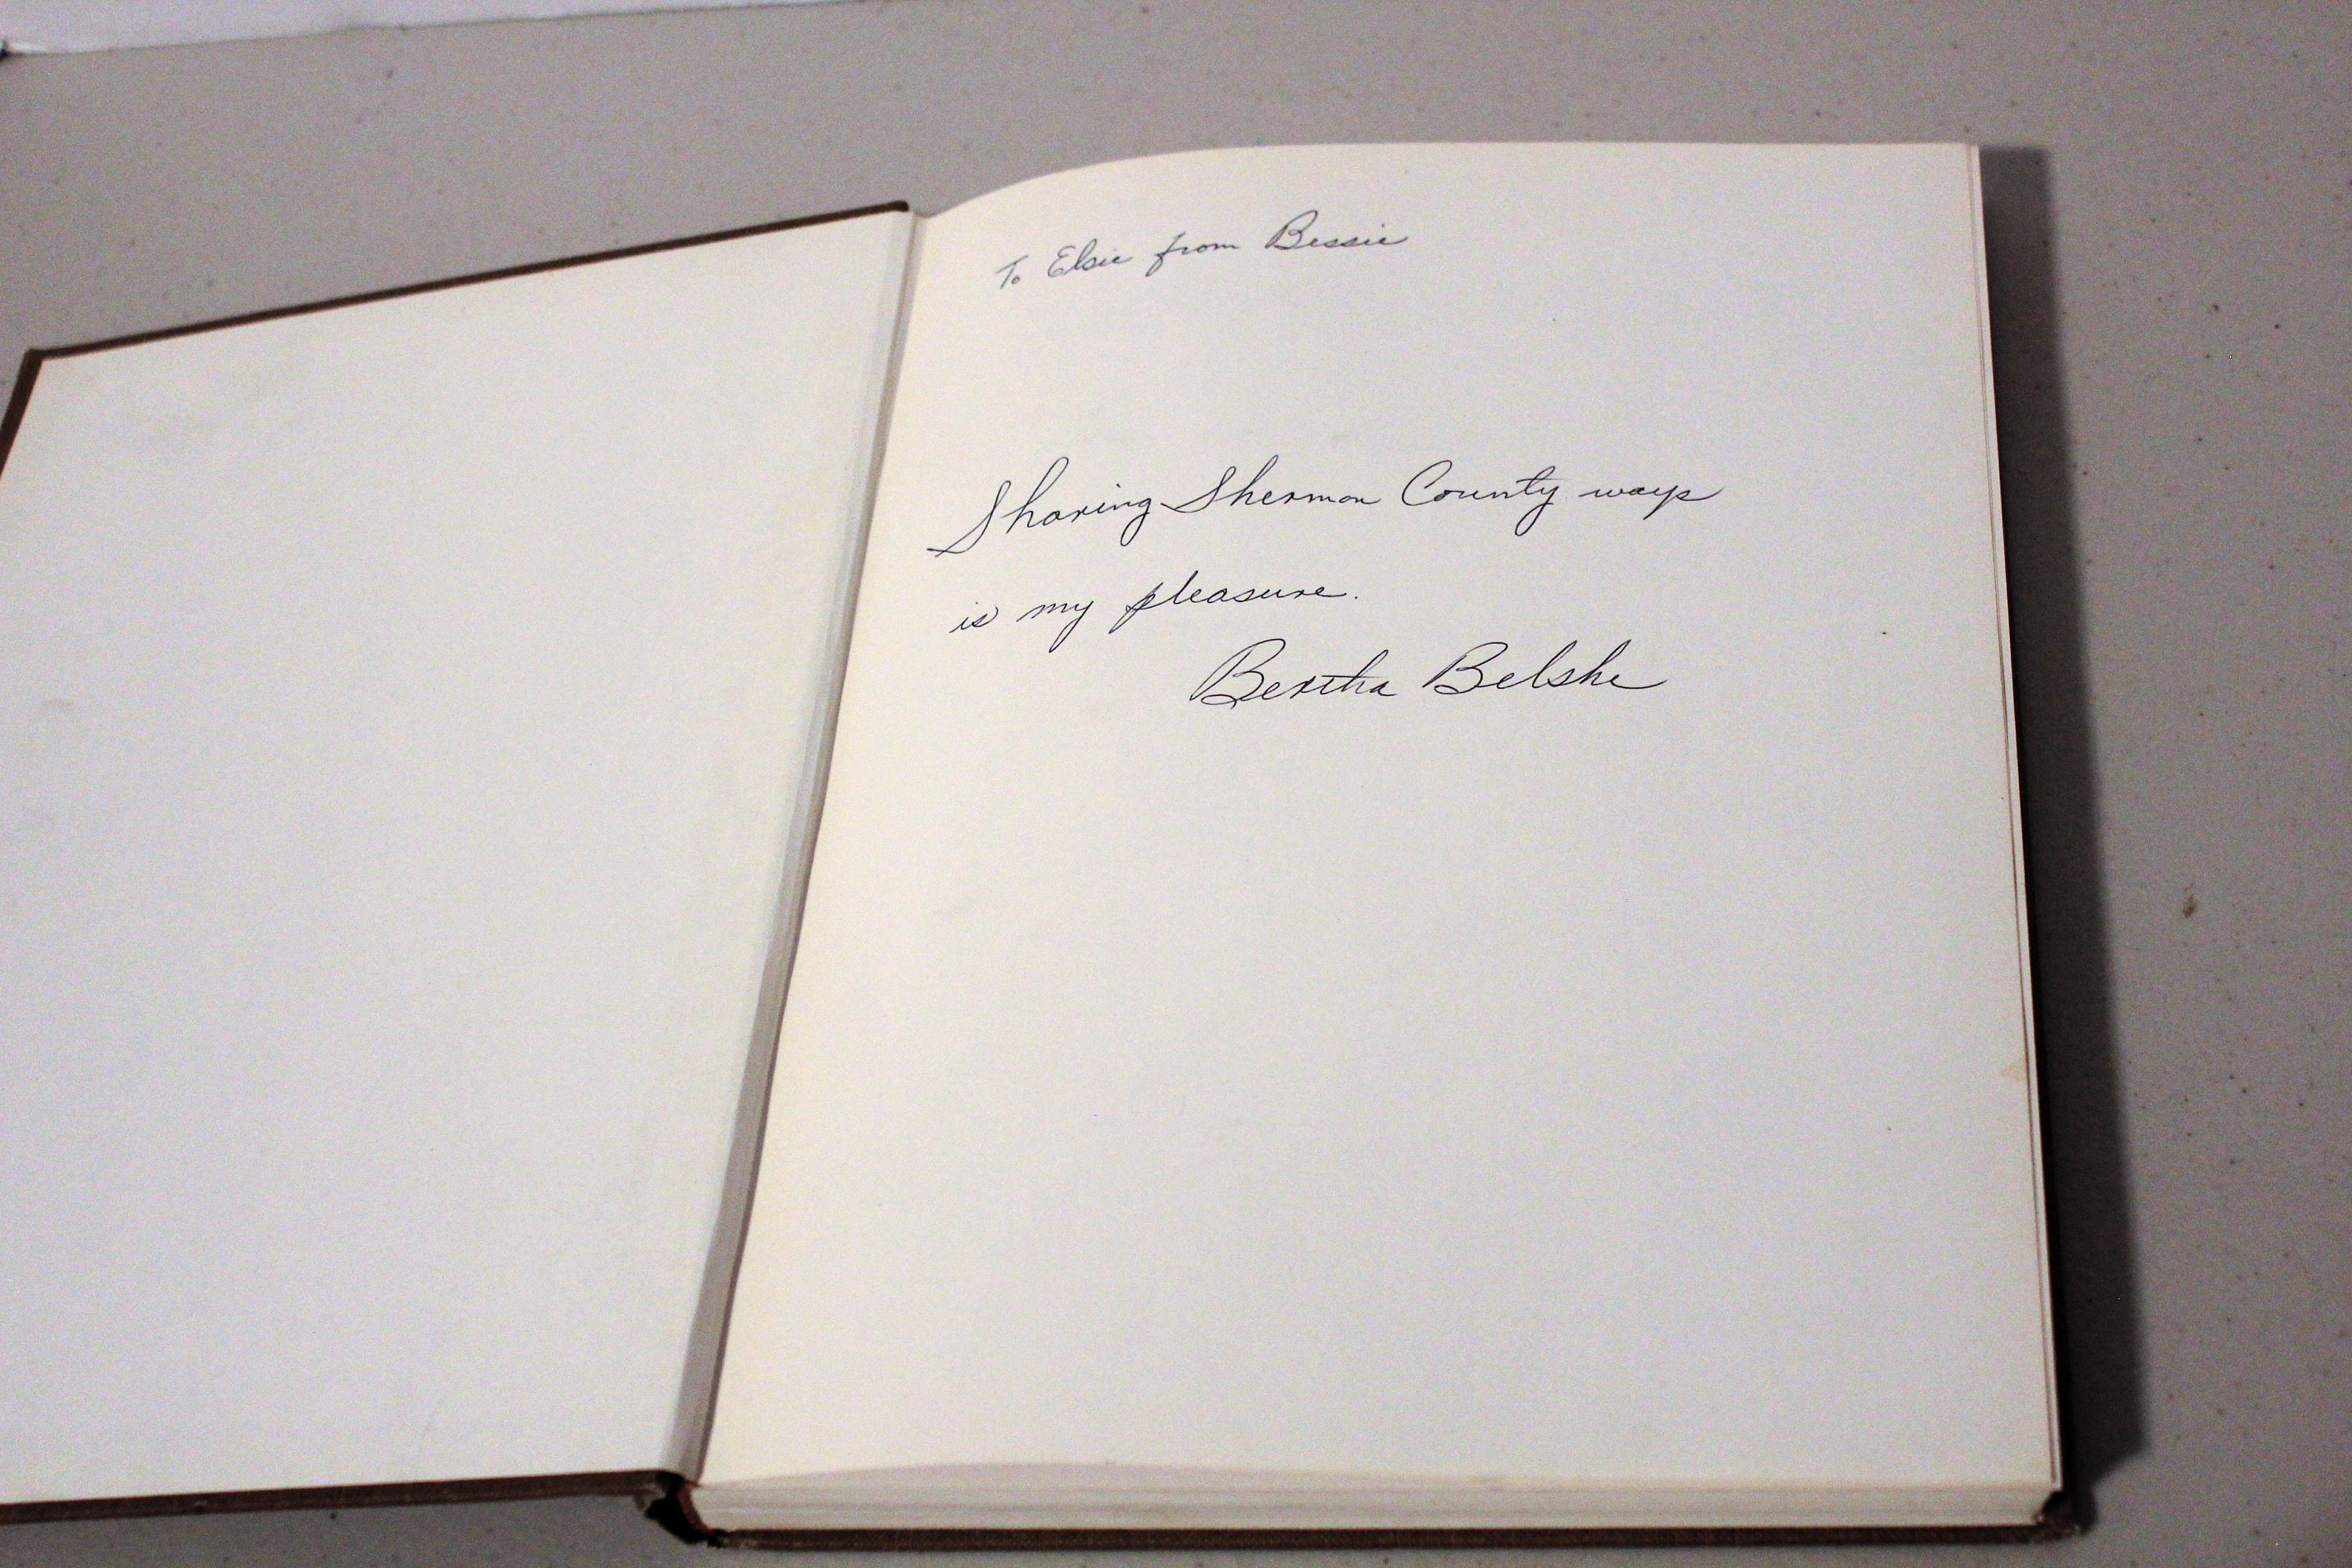 To Elsie from Bessie
Sharing Sherman County ways
is my pleasure.
Bertha Belshe